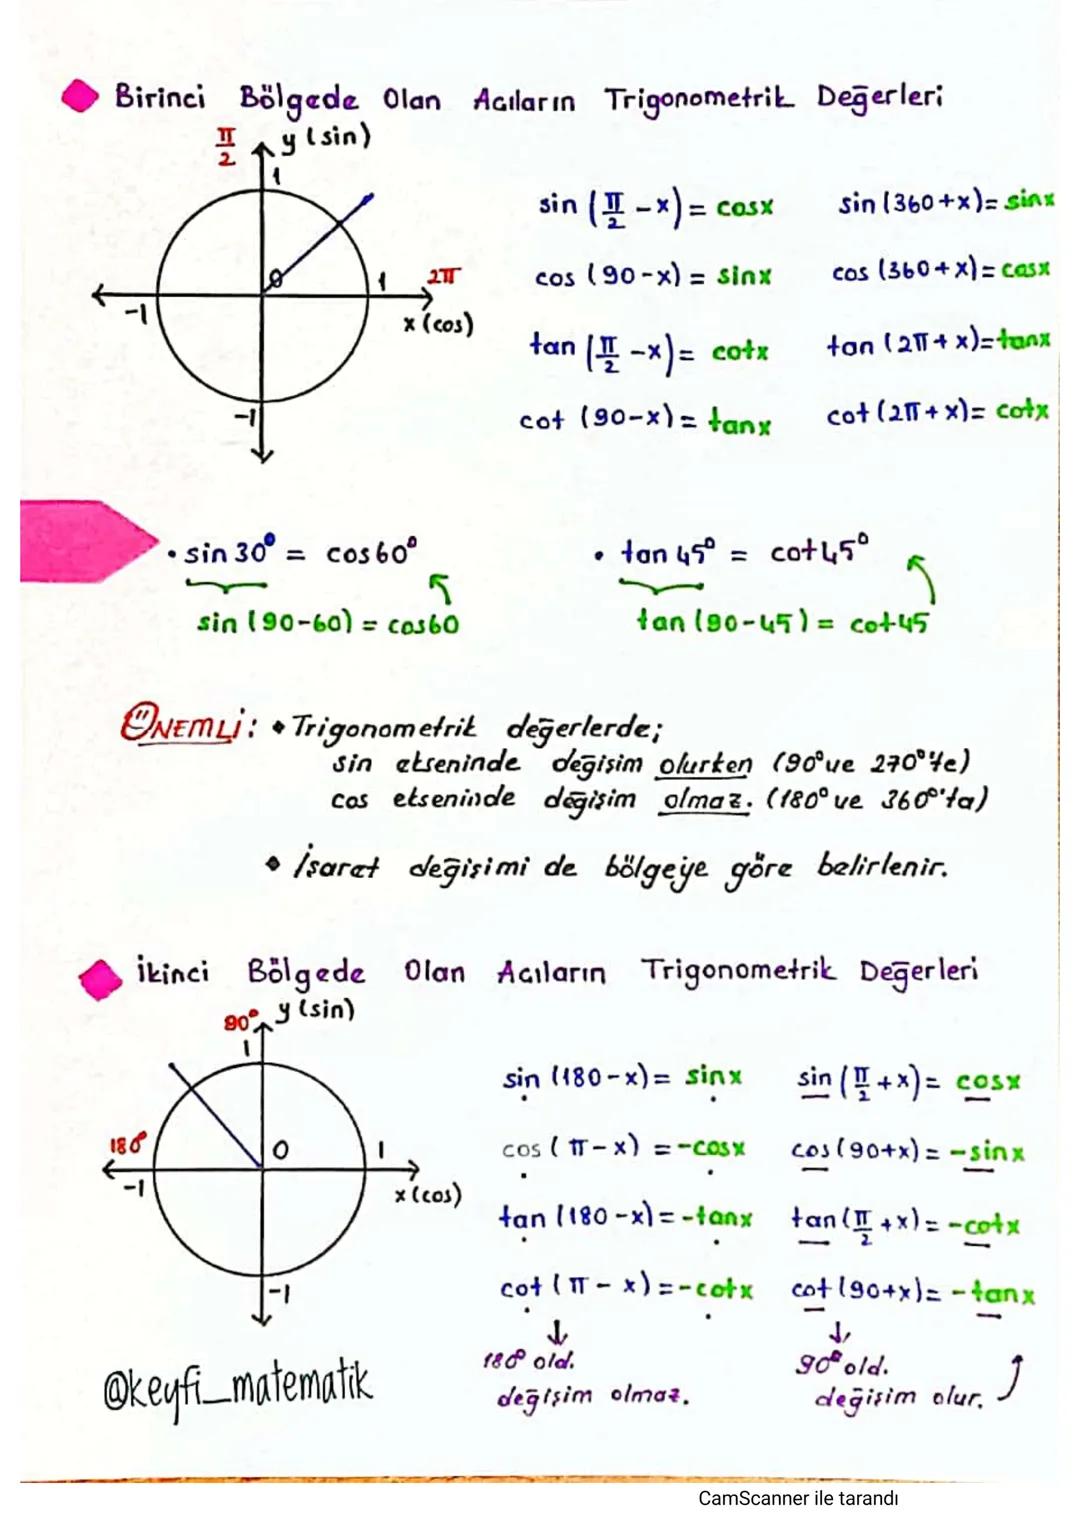 Birinci Bölgede Olan Açıların Trigonometrik Değerleri
π/2
y (sin)
1
θ
1
2π
-1
x (cos)
-1
sin (π/2 - x) = cosx
sin (360+x) = sinx
cos (90-x) = sinx
cos (360+x) = cosx
tan (π/2 - x) = cotx
tan (2π+x) = tanx
cot (90-x) = tanx
cot (2π+x) = cotx
• sin 30° = cos 60°
• tan 45° = cot 45°
sin (90-60) = cos60
tan (90-45) = cot45
ÖNEMLİ: • Trigonometrik değerlerde;
sin ekseninde değişim olurken (90° ve 270°'de)
cos ekseninde değişim olmaz. (180° ve 360°'ta)
• İşaret değişimi de bölgeye göre belirlenir.
İkinci Bölgede Olan Açıların Trigonometrik Değerleri
90°
y (sin)
1
180°
O
1
-1
x (cos)
-1
sin (180-x) = sinx
sin (π/2 + x) = cosx
cos (π - x) = -cosx
cos (90+x) = -sinx
tan (180-x) = -tanx
tan (π/2 + x) = -cotx
cot (π - x) = -cotx
cot (90+x) = -tanx
↓
180° old.
değişim olmaz.
↓
90° old.
değişim olur.
@keyfi_matematik
CamScanner ile tarandı